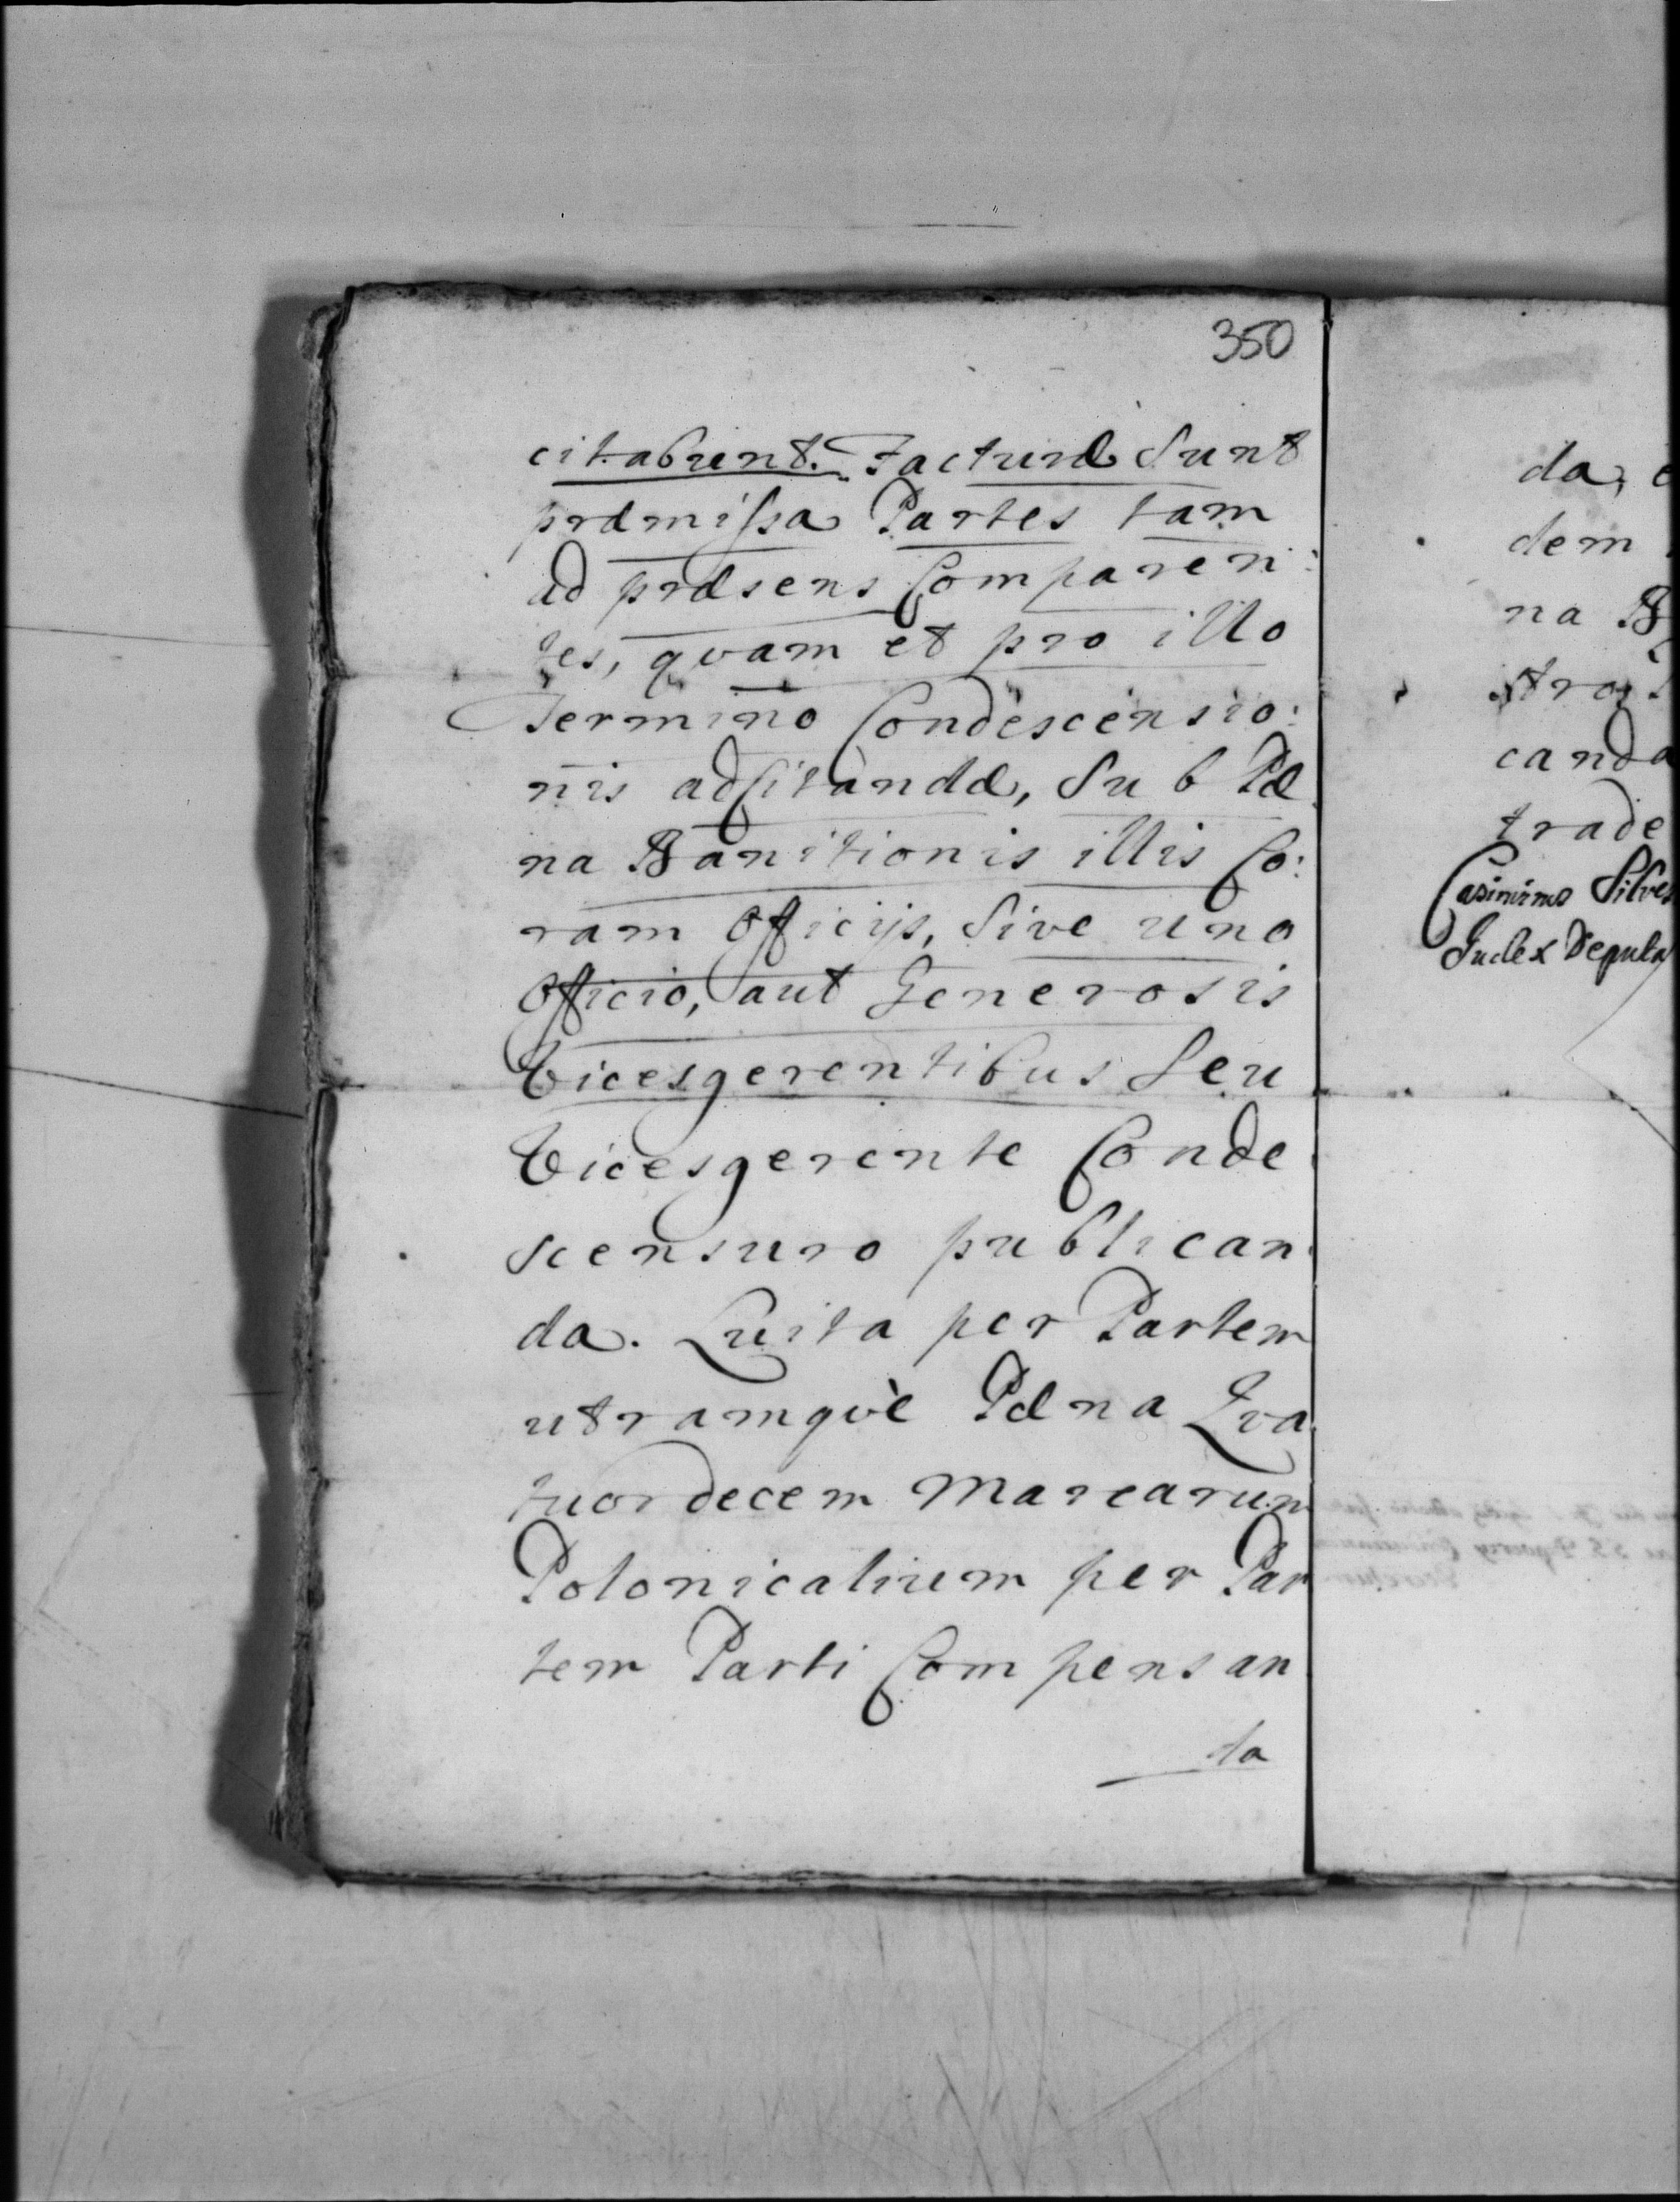 350
citabunt. Facturæ Sunt
præmissa Partes tam
ad præsens Comparen:
tes, qvam et pro illo
Termino Condescensio:
nis adCitandæ, Sub Pæ
na Banitionis illis Co:
ram Officijs, Sive uno
Officio, aut Generosis
Vicesgerentibus Seu
Vicesgerente Conde
scensuro publican
da. Luita per Partem
utramqvè Pæna Qva
tuordecem Marcarum
Polonicalium per Par
tem Parti Compensan
da
da, e
dem
na B
stro
canda
trade
Casimirus Silves
Judex Deputa